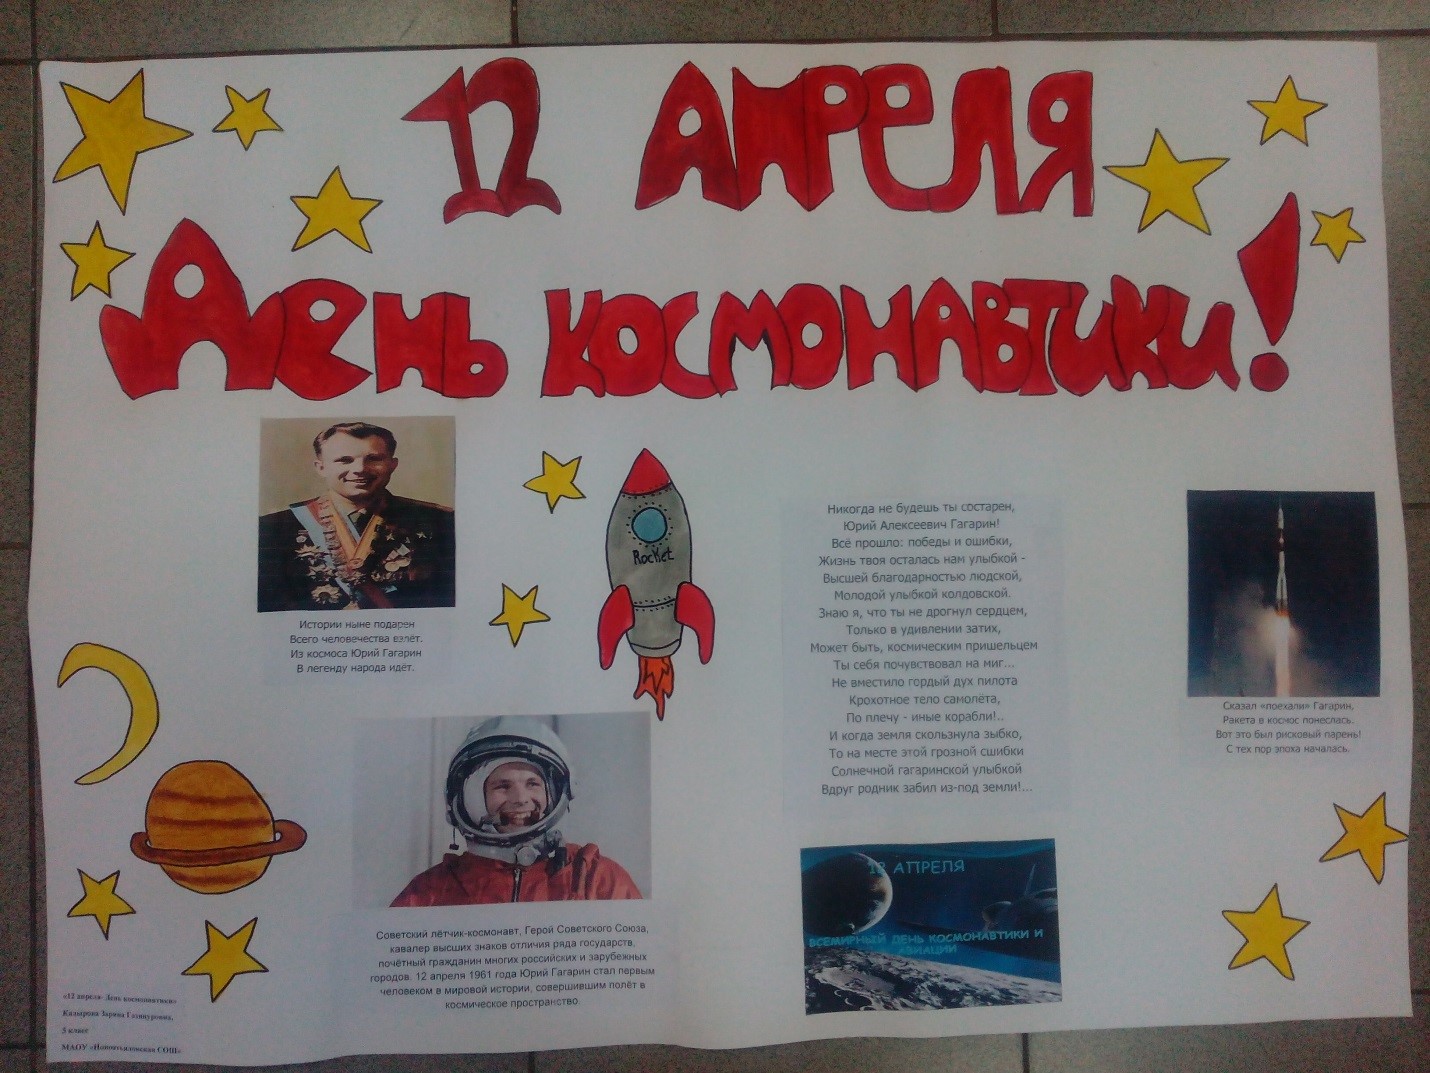 12 АПРЕЛЯ
ДЕНЬ КОСМОНАВТИКИ!
Истории ныне подарен
Всего человечества взлёт.
Из космоса Юрий Гагарин
В легенду народа идёт.
Rocket
Советский лётчик-космонавт, Герой Советского Союза,
кавалер высших знаков отличия ряда государств,
почётный гражданин многих российских и зарубежных
городов. 12 апреля 1961 года Юрий Гагарин стал первым
человеком в мировой истории, совершившим полёт в
космическое пространство
Никогда не будешь ты состарен,
Юрий Алексеевич Гагарин!
Всё прошло: победы и ошибки,
Жизнь твоя осталась нам улыбкой -
Высшей благодарностью людской,
Молодой улыбкой колдовской.
Знаю я, что ты не дрогнул сердцем,
Только в удивлении затих,
Может быть, космическим пришельцем
Ты себя почувствовал на миг...
Не вместило гордый дух пилота
Крохотное тело самолёта,
По плечу - иные корабли!..
И когда земля скользнула зыбко,
То на месте этой грозной сшибки
Солнечной гагаринской улыбкой
Вдруг родник забил из-под земли!...
12 АПРЕЛЯ
ВСЕМИРНЫЙ ДЕНЬ КОСМОНАВТИКИ И
АВИАЦИИ
Сказал «поехали» Гагарин,
Ракета в космос понеслась.
Вот это был рисковый парень!
С тех пор эпоха началась.
«12 апреля- День космонавтики»
Зарина
5 класс
МАОУ СОШ»